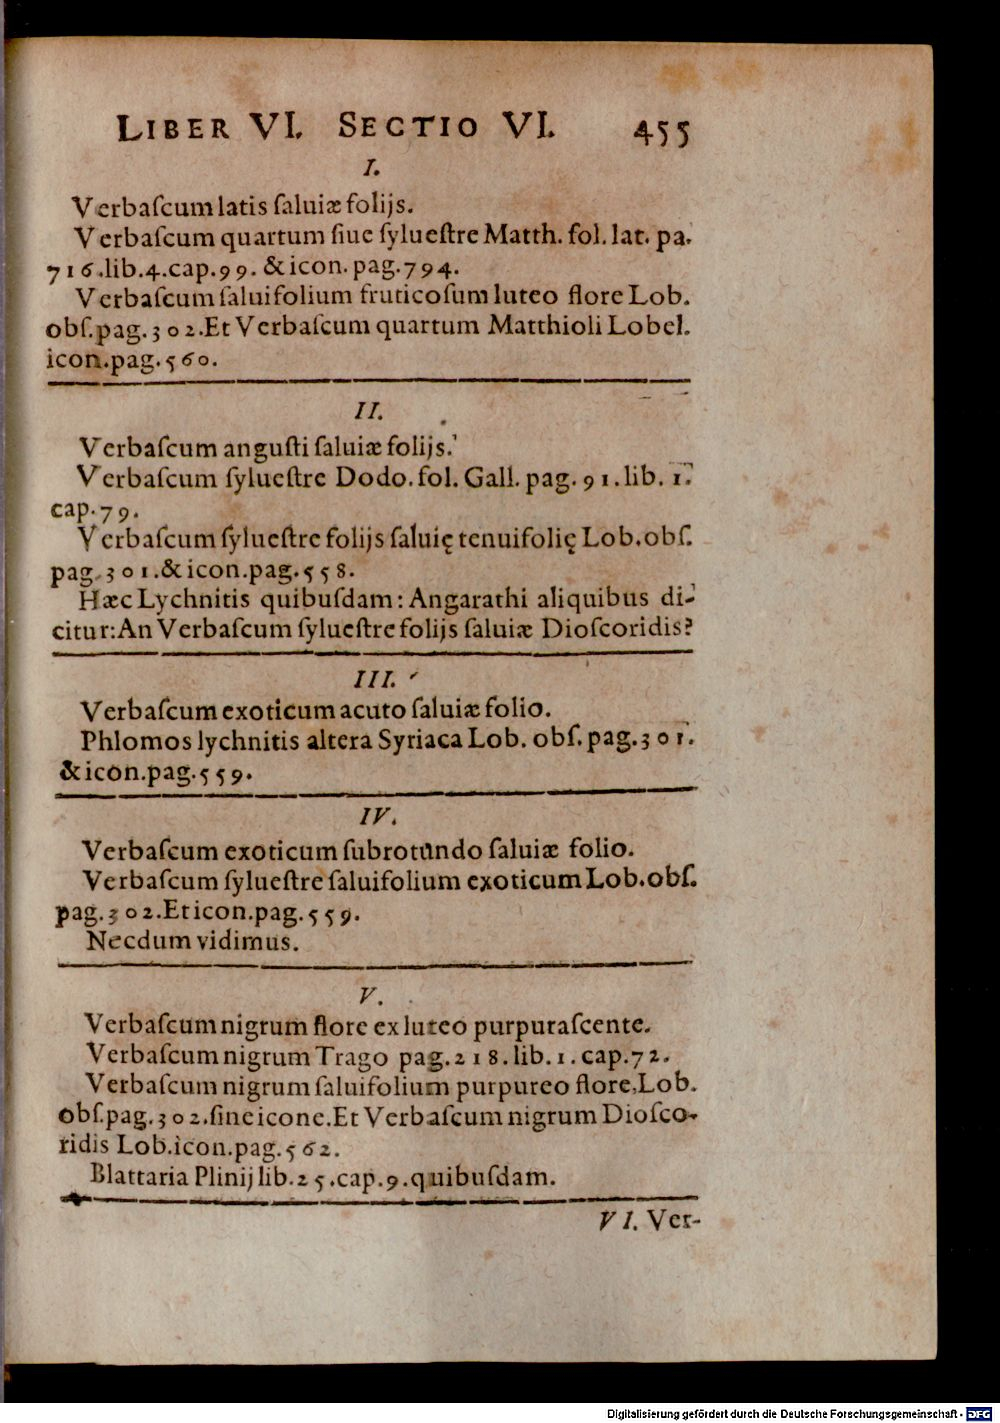 LIBER VI. SECTIO VI. 455
I.
Verbaſcum latis ſaluiæ folijs.
Verbaſcum quartum ſiue ſylueſtre Matth. fol. lat. pa.
716.lib.4.cap.99. & icon. pag.794.
Verbaſcum ſaluifolium fruticoſum luteo flore Lob.
obſ.pag.302.Et Verbaſcum quartum Matthioli Lobel.
icon.pag.560.
II.
Verbaſcum anguſti ſaluiæ folijs.
Verbaſcum ſylueſtre Dodo. fol. Gall. pag. 91. lib. 1.
cap.79.
Verbaſcum ſylueſtre folijs ſaluię tenuifolię Lob.obſ.
pag.301.& icon.pag.558.
Hæc Lychnitis quibuſdam: Angarathi aliquibus di-
citur: An Verbaſcum ſylueſtre folijs ſaluiæ Dioſcoridis?
III.
Verbaſcum exoticum acuto ſaluiæ folio.
Phlomos lychnitis altera Syriaca Lob. obſ. pag.301.
& icon.pag.559.
IV.
Verbaſcum exoticum ſubrotundo ſaluiæ folio.
Verbaſcum ſylueſtre ſaluifolium exoticum Lob.obſ.
pag.302.Et icon.pag.559.
Necdum vidimus.
V.
Verbaſcum nigrum flore ex luteo purpuraſcente.
Verbaſcum nigrum Trago pag.218.lib.1.cap.72.
Verbaſcum nigrum ſaluifolium purpureo flore, Lob.
obſ.pag.302.ſine icone.Et Verbaſcum nigrum Dioſco-
ridis Lob.icon.pag.562.
Blattaria Plinij lib.25.cap.9.quibuſdam.
VI. Ver-
Digitalisierung gefördert durch die Deutsche Forschungsgemeinschaft - DFG